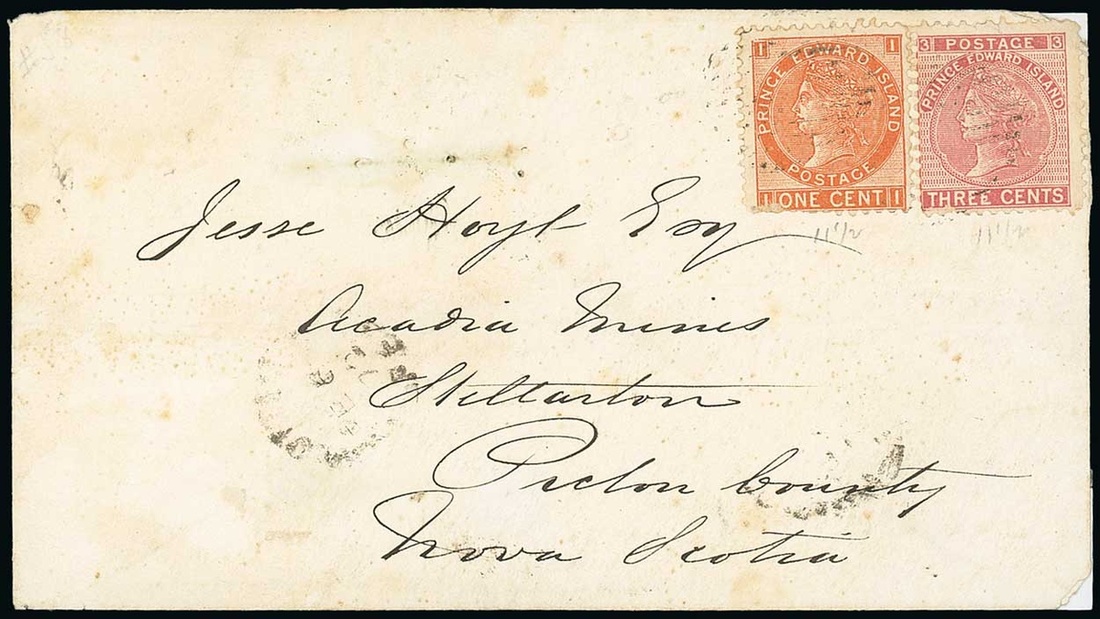 1 1
PRINCE EDWARD ISLAND
POSTAGE
1 ONE CENT 1
3 POSTAGE 3
PRINCE EDWARD ISLAND
THREE CENTS
11½ 11½
Jesse Hoyt Esq
Acadia Mines
Stellarton
Pictou County
Nova Scotia